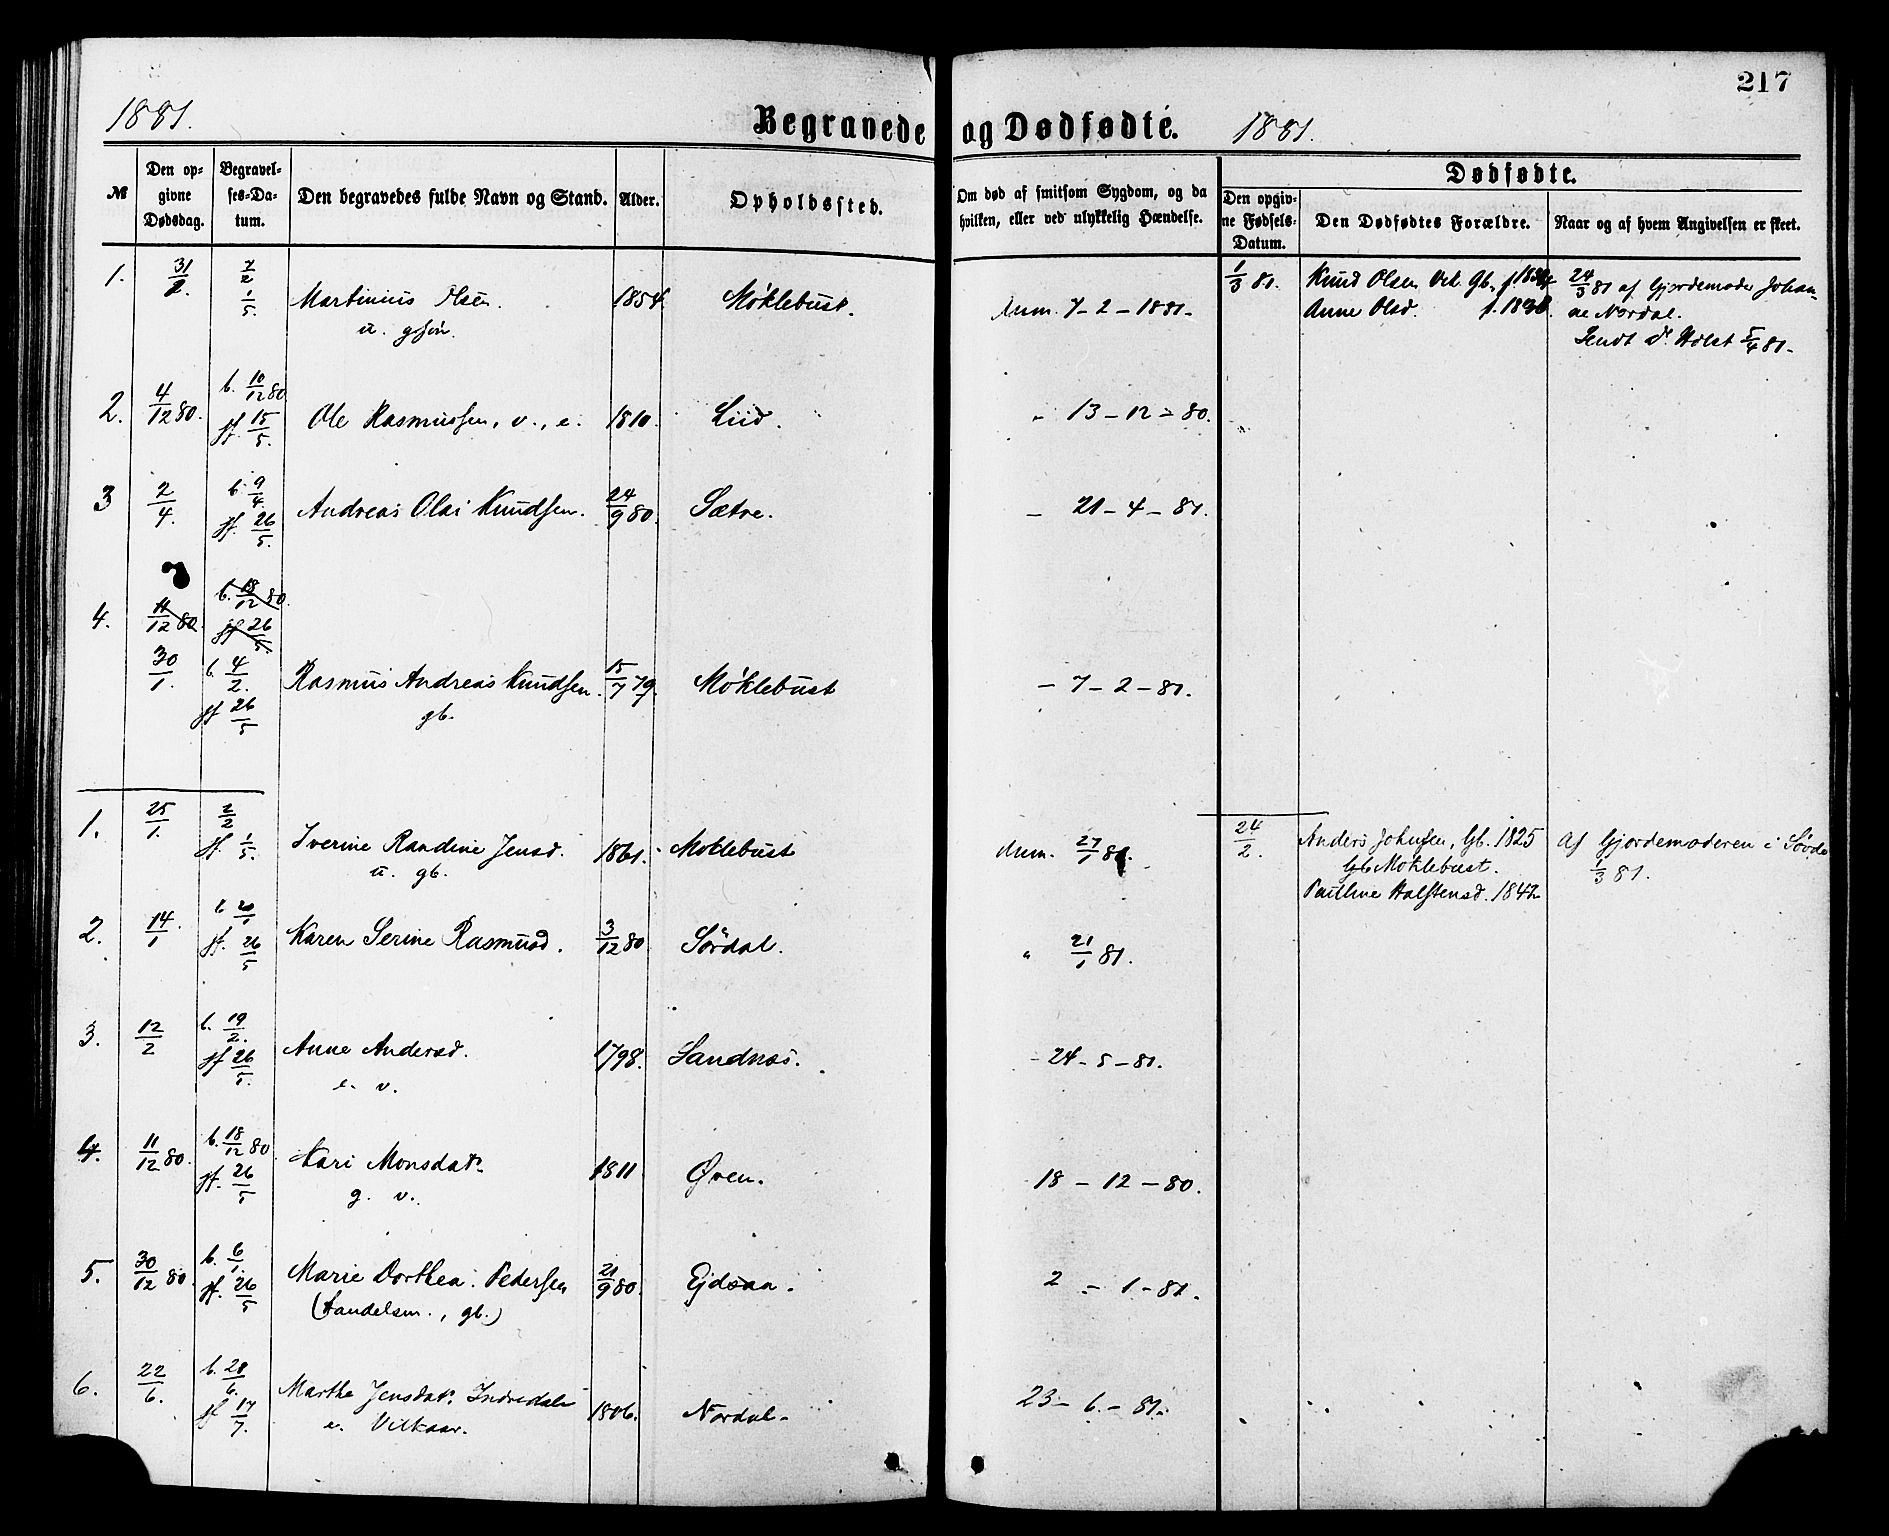 217
1881.
Begravede og Dødfødte.
1881.
№
Den opgivne Dødsdag.
Begravelses-Datum.
Den begravedes fulde Navn og Stand.
Alder.
Opholdssted.
Om død af smitsom Sygdom, og da hvilken, eller ved ulykkelig Hændelse.
Dødfødte.
Den opgivne Fødsels-Datum.
Den Dødfødtes Forældre.
Naar og af hvem Angivelsen er skeet.
1. 31/1. 7/2 1/5. Martinius Olsen 1854. Møklebust. Anm. 7-2-1881- 1/3 81. Knud Olsen Gb. f. 24/3 81 af Gjordemoder Johan-
u. gsøn. Anne Olsd. f. ne Nordal.
Sendt Holst 5/4 81-
2. 4/12 80. b. 10/12 80 jf. 15/5. Ole Rasmussen, v., e. 1810. Liid. " 13-12-80.
3 2/4. b. 9/4 jf. 26/5. Andreas Olai Knudsen. 24/9 80. Sætre. - 21-4-81.
4. 11/12 80. b. 18/12 80. jf 26/5.
30/1. b. 4/2. jf 26/5 Rasmus Andreas Knudsen. 15/7 79. Møklebust - 7-2-81.
gb.
1. 25/1. 2/2 jf. 1/5. Iverine Randine Jensd. 1861. Moklebust Anm. 27/1 81. 24/2. Anders Johnsen, Gb. 1825 Af Gjordemoderen i Søvde
u. gb. Gb Moklebust. 1/3 81.
Pauline Halstensd. 1842
2. 14/1 b. 20/1 jf. 26/5 Karen Serine Rasmusd. 3/12 80 Sørdal. " 21/1 81.
3. 12/2 b. 19/2. jf 26/5. Anne Andersd. 1798. Sandnæs. - 24-5-81.
e. v.
4. 11/12 80. b. 18/12 80 jf. 26/5 Kari Monsdatr 1811 Øren. 18-12-80.
g. v.
5. 30/12 80. b. 6/1. jf. 26/5 Marie Dorthea Pedersen 21/9 80. Ejdsaa. 2-1-81.
(Handelsm., gb.)
6. 22/6. b. 28/6. jf 17/7. Marthe Jensdatr. Indredale 1806. Nordal- 23-6.-81.
e. Vilkaar.